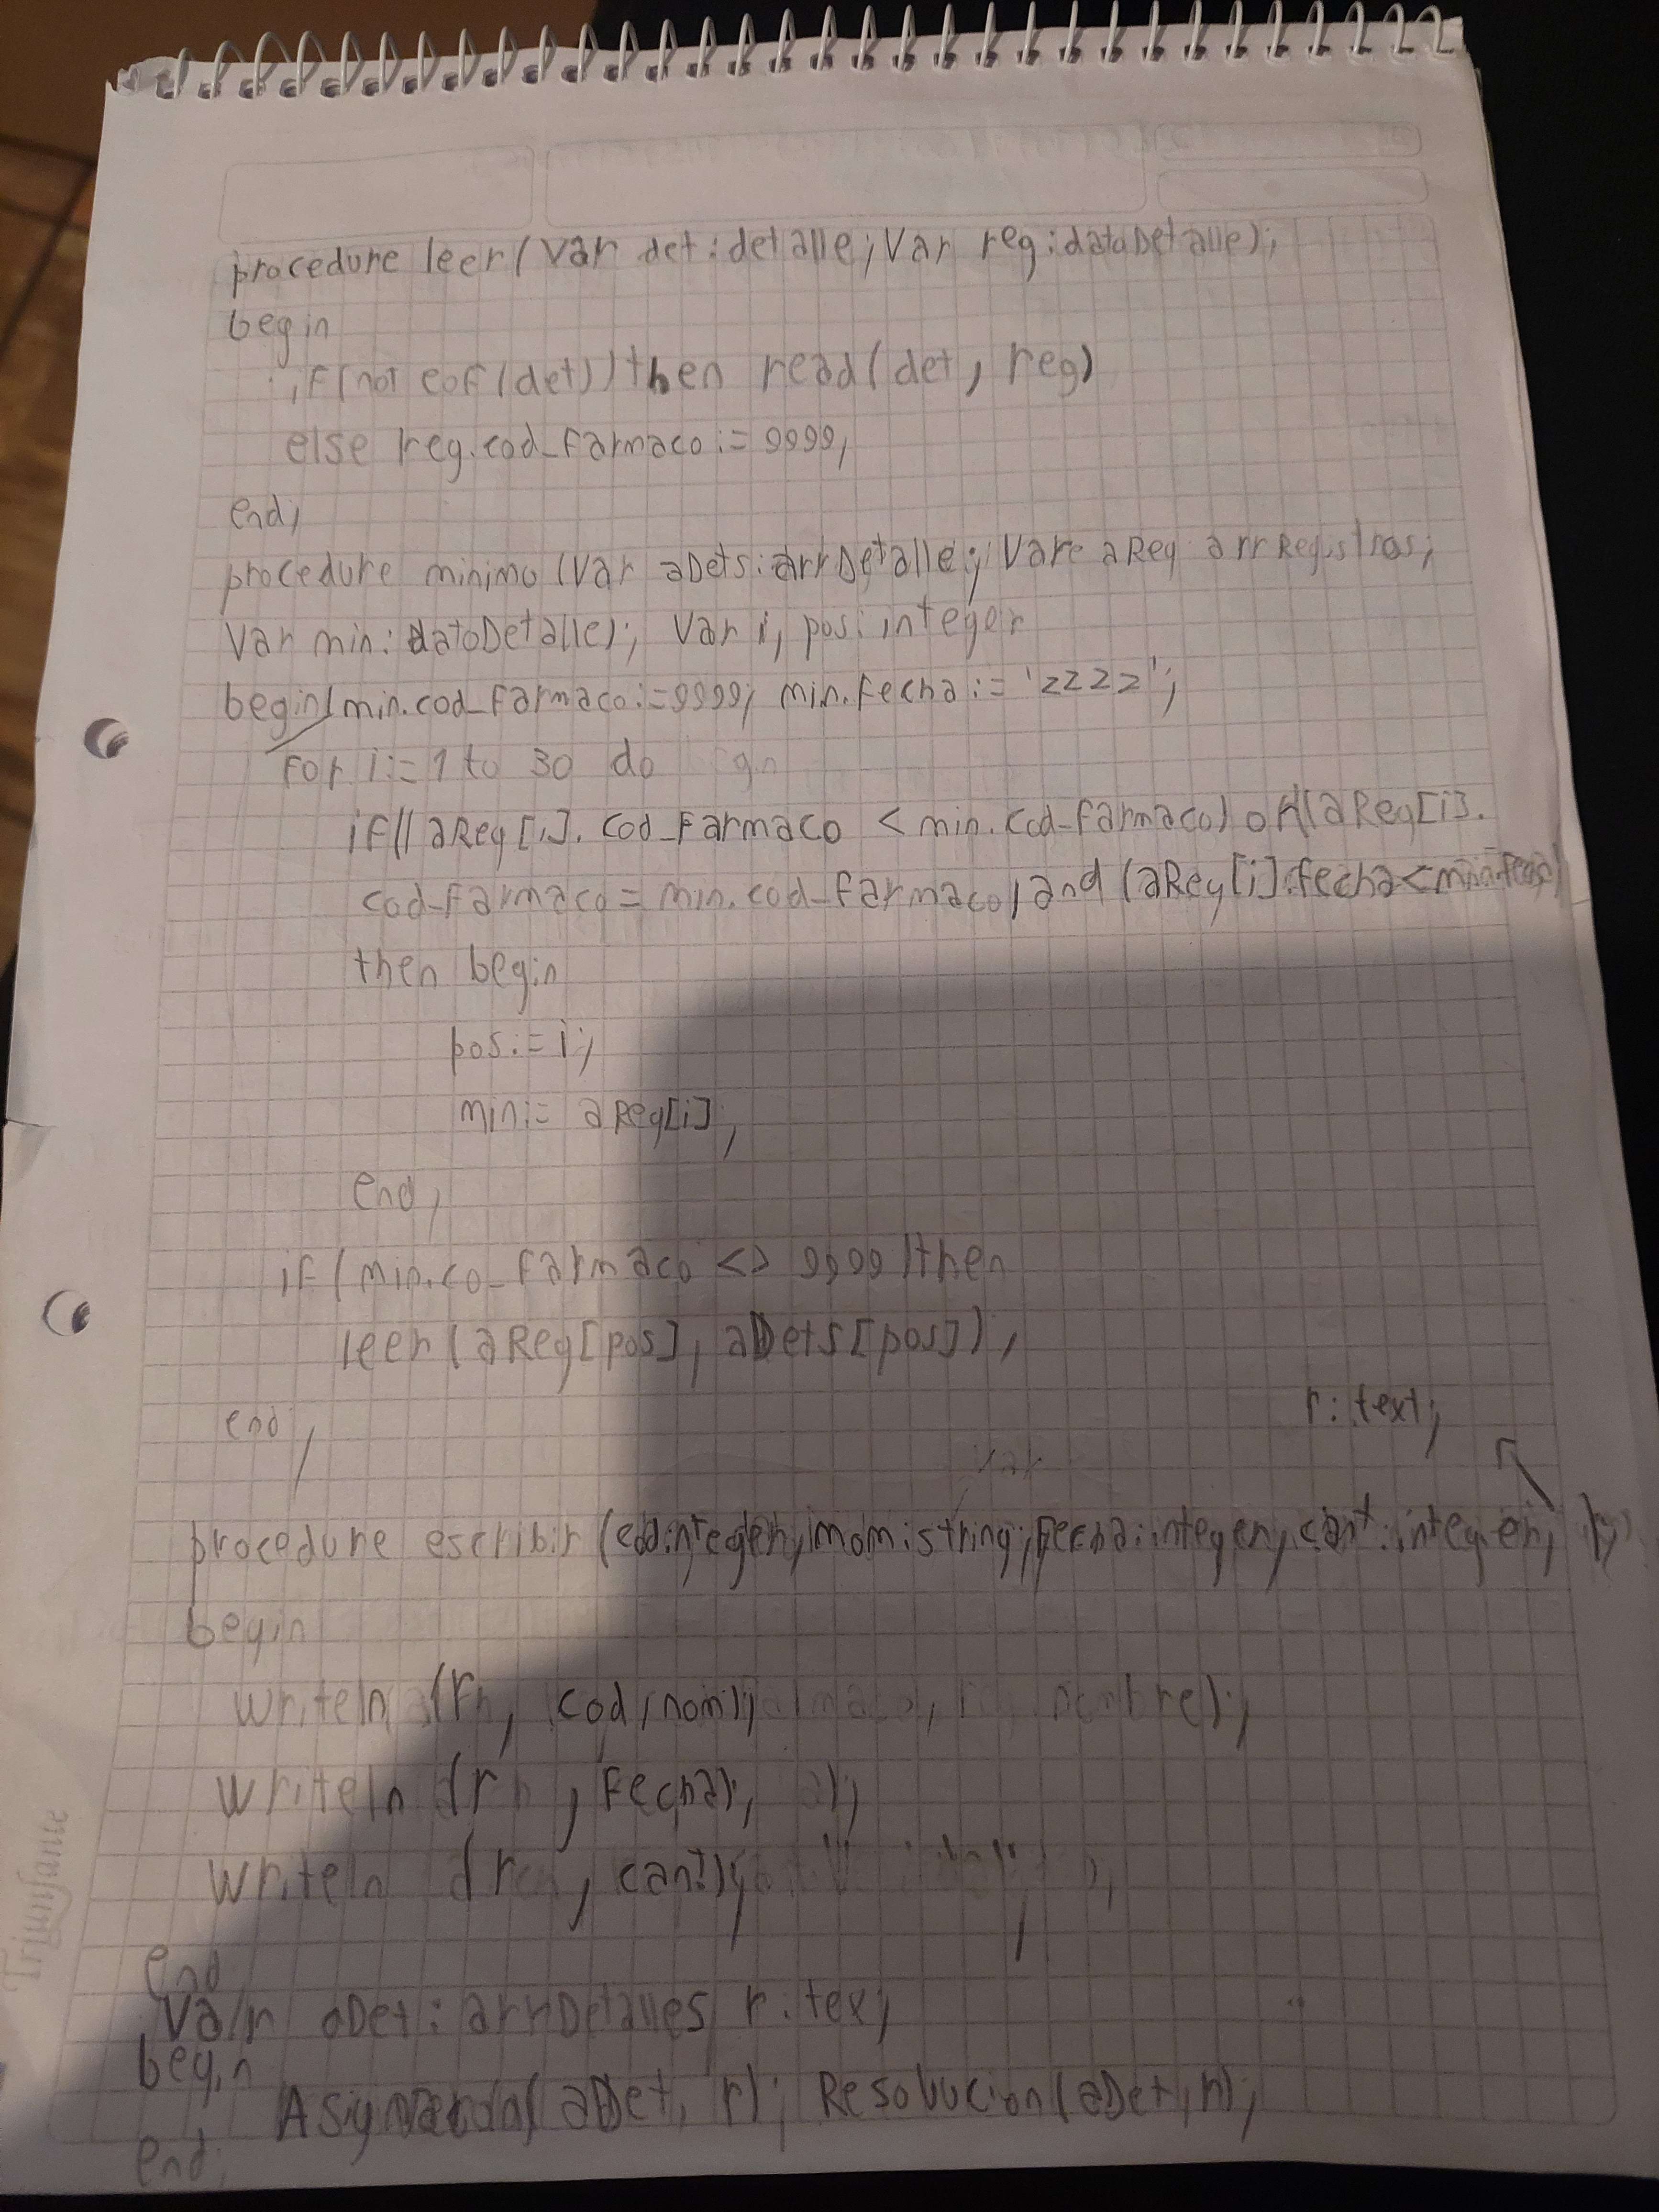 procedure leer(Var det:detalle;Var reg:datoDetalle);
begin
if(not eof(det))then read(det, reg)
else reg.cod_farmaco:=9999;
end;
procedure minimo (Var aDets:arrDetalle; Var aReg arrRegistros;
Var min:datoDetalle); Var i, pos:integer
begin min.cod_farmaco:=9999; min.fecha:='zzzz';
for i:=1 to 30 do
if((aReg[i].cod_farmaco < min.cod_farmaco) or (aReg[i].
cod_farmaco=min.cod_farmaco)and (aReg[i].fecha<min.fecha)
then begin
pos:=i;
min:= aReg[i];
end;
if(min.co_farmaco <> 9999)then
leer(aReg[pos], aDets[pos]);
end;
r:text;
Var
procedure escribir (cod:integer; nom:string; fecha:integer, cant:integer;
begin
writeln (r, cod, nom);
writeln (r, fecha);
writeln (r, cant);
end
Var aDet:arrDetalles r:tex;
begin
(aDet, r); Resolucion(aDet,r);
end;
Triunfante